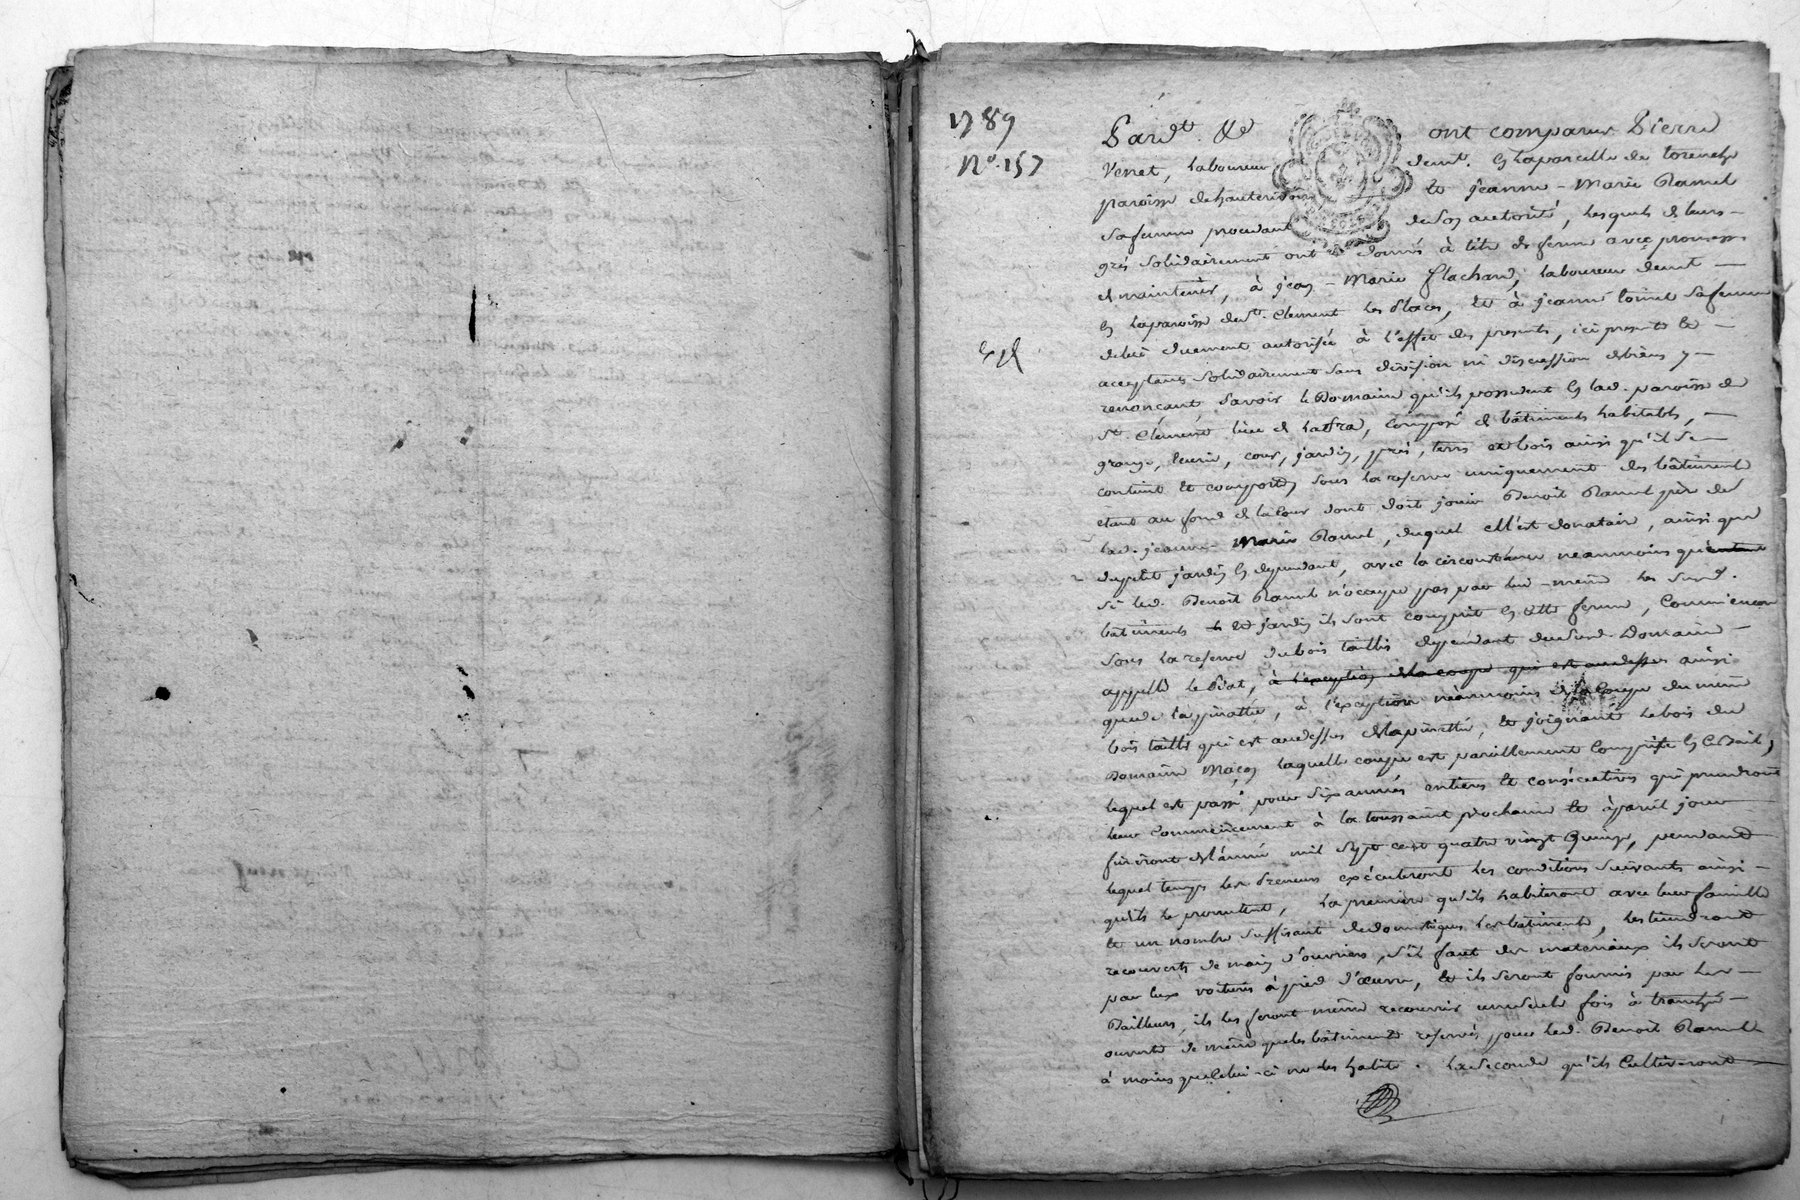 1789
N°. 157
Pardt. &c ont comparus Pierre
Venet, laboureur demt. en la parcelle de torenche
paroisse de hauterivoire et jeanne-Marie Ramel
sa femme procedant de son autorité, lesquels de leurs
grés solidairement ont donnés à titre de ferme avec promesse
de maintenir, à jean-Marie flachard, laboureur demt
en la paroisse de st. Clement les places, et à jeanne sa femme
de lui duement autorisée à l'effet des presents, ici presents et
acceptants solidairement sans division ni discussion de biens y
renonçant, savoir le Domaine qu'ils possedent en lad. paroisse de
st. Clement lieu de composé de bâtiments habitables,
grange, écurie, cour, jardin, prés, terres et bois ainsi qu'il se
contient et comporte, sous la reserve uniquement des bâtiments
étant au fond de la Cour dont doit jouir Benoit Ramel père de
lad. jeanne-Marie Ramel, duquel elle est donataire, ainsi que
du petit jardin en dependant, avec la circonstance neanmoins que
si led. Benoit Ramel n'occupe pas par lui-même les susd.
bâtiments et jardin ils sont compris en cette ferme, Comme encore
sous la reserve du bois taillis dependant du susd. Domaine
appellé le Piat, à l'exception de la coupe qui est audessus ainsi
que de la pinatte, à l'exception néanmoins de la Coupe du même
bois taillis qui est audessus de la pinatte, et joignant le bois du
Domaine Maçon laquelle coupe est pareillement Comprise en ce Bail,
lequel est passé pour six années entieres et consécutives qui prendront
leur commencement à la toussaint prochaine et à pareil jour
finiront de l'année mil sept cent quatre vingt Quinze, pendant
lequel temps les preneurs exécuteront les conditions suivantes ainsi
qu'ils le promettent, la premiere qu'ils habiteront avec leur famille
et un nombre suffisant de domestiques les bâtiments, les tiendront
recouverts de main d'ouvriers, s'il faut des materiaux ils seront
par eux voiturés à pied d'œuvre, et ils seront fournis par les
Bailleurs, ils les feront même recouvrir une seule fois à tranche
ouverte de même que les bâtiments reservés pour led. Benoit Ramel
à moins que Celui-ci ne les habite. La seconde qu'ils Cultiveront